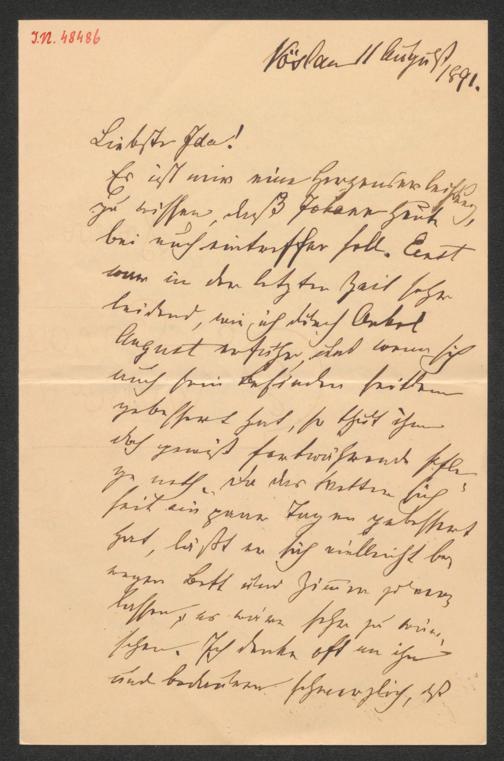 J.N. 48486
Vöslau 11 August
1891.
Liebste Ida!
Es ist mir eine Herzenserleichterung,
zu wissen, daß Johann heute
bei euch eintreffen soll. Ernst
war in der letzten Zeit sehr
leidend, wie ich durch Onkel
August erfuhr, und wenn sich
auch sein Befinden seitdem
gebessert hat, so thut ihm
doch gewiß fortwährende Pfle-
ge noth. Da das Wetter sich
seit ein paar Tagen gebessert
hat, läßt er sich vielleicht be-
wegen Bett und Zimmer zu ver-
lassen, es wäre sehr zu wün-
schen. Ich denke oft an ihn
und bedauere schmerzlich, daß